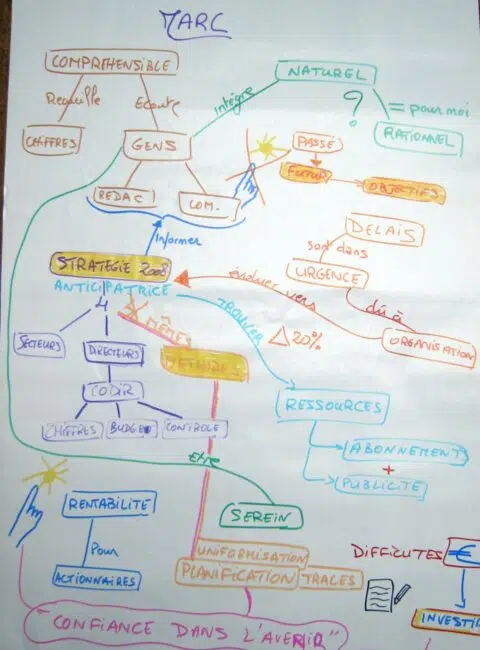 MARC
COMPRÉHENSIBLE
NATUREL
Recueille
Ecoute
intègre
?
= pour moi
RATIONNEL
CHIFFRES
GENS
PASSÉ
FUTUR
OBJECTIFS
REDAC
COM.
DELAIS
Informer
sont dans
STRATEGIE 2008
URGENCE
ANTICIPATRICE
évoluer vers
dû à
MÊMES
TROUVER
20%
ORGANISATION
SECTEURS
DIRECTEURS
METHODES
CODIR
RESSOURCES
CHIFFRES
BUDGET
CONTROLE
ABONNEMENT
+
ETRE
PUBLICITÉ
RENTABILITÉ
SEREIN
pour
UNIFORMISATION
DIFFICUTES
€
ACTIONNAIRES
PLANIFICATION
TRACES
INVESTI
"CONFIANCE DANS L'AVENIR"